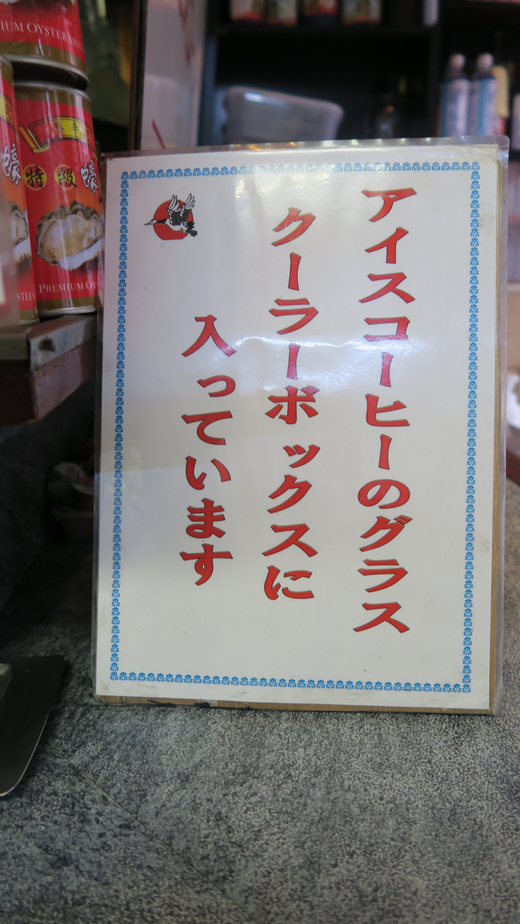 アイスコーヒーのグラス
クーラーボックスに
入っています
PREMIUM OYSTER
特級蠔